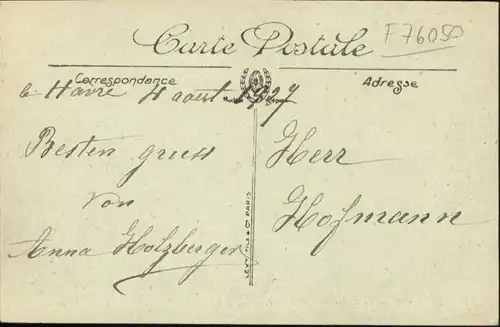 F 76050
Carte Postale
Correspondance
Adresse
le Havre 4 aout 1927
Besten gruss
von
Anna Holzberger
Herr
Hofmann
LEVY FILS & Cie PARIS